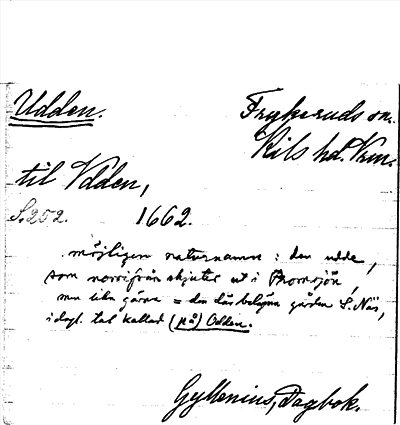 Udden.
Frykeruds sn.
Kils hd. Vrm.
til Vdden,
S. 252. 1662.
möjligen naturnamn: den udde,
som norrifrån skjuter ut i Thomsjön,
men lika gärna = den där belägna gården S. Näs,
i dagl. tal kallad (på) Udden.
Gyllenius, Dagbok.